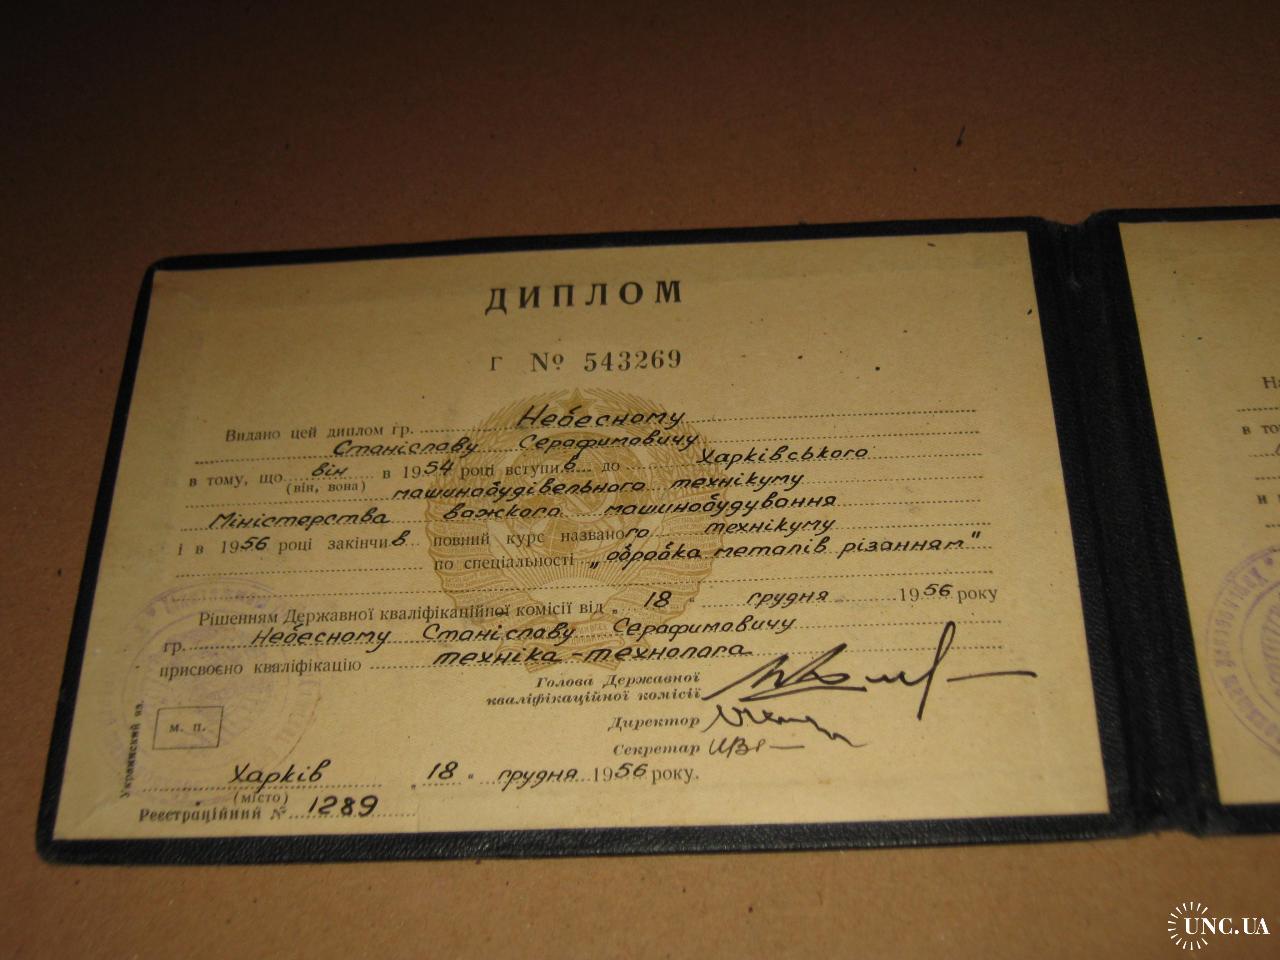 ДИПЛОМ
Г № 543269
Видано цей диплом гр. Небесному
Станіславу Серафимовичу
в тому, що він в 1954 році вступив до Харківського
(він, вона) машинобудівельного технікуму
Міністерства важкого машинобудування
і в 1956 році закінчив повний курс названого технікуму
по спеціальності „обробка металів різанням"
Рішенням Державної кваліфікаційної комісії від „18" грудня 1956 року
гр. Небесному Станіславу Серафимовичу
присвоєно кваліфікацію техніка-технолога
Голова Державної
кваліфікаційної комісії
Директор
Секретар
м. п.
Украинский яз.
Харків „18" грудня 1956 року.
(місто)
Реєстраційний № 1289
На
в то
и
UNC.UA